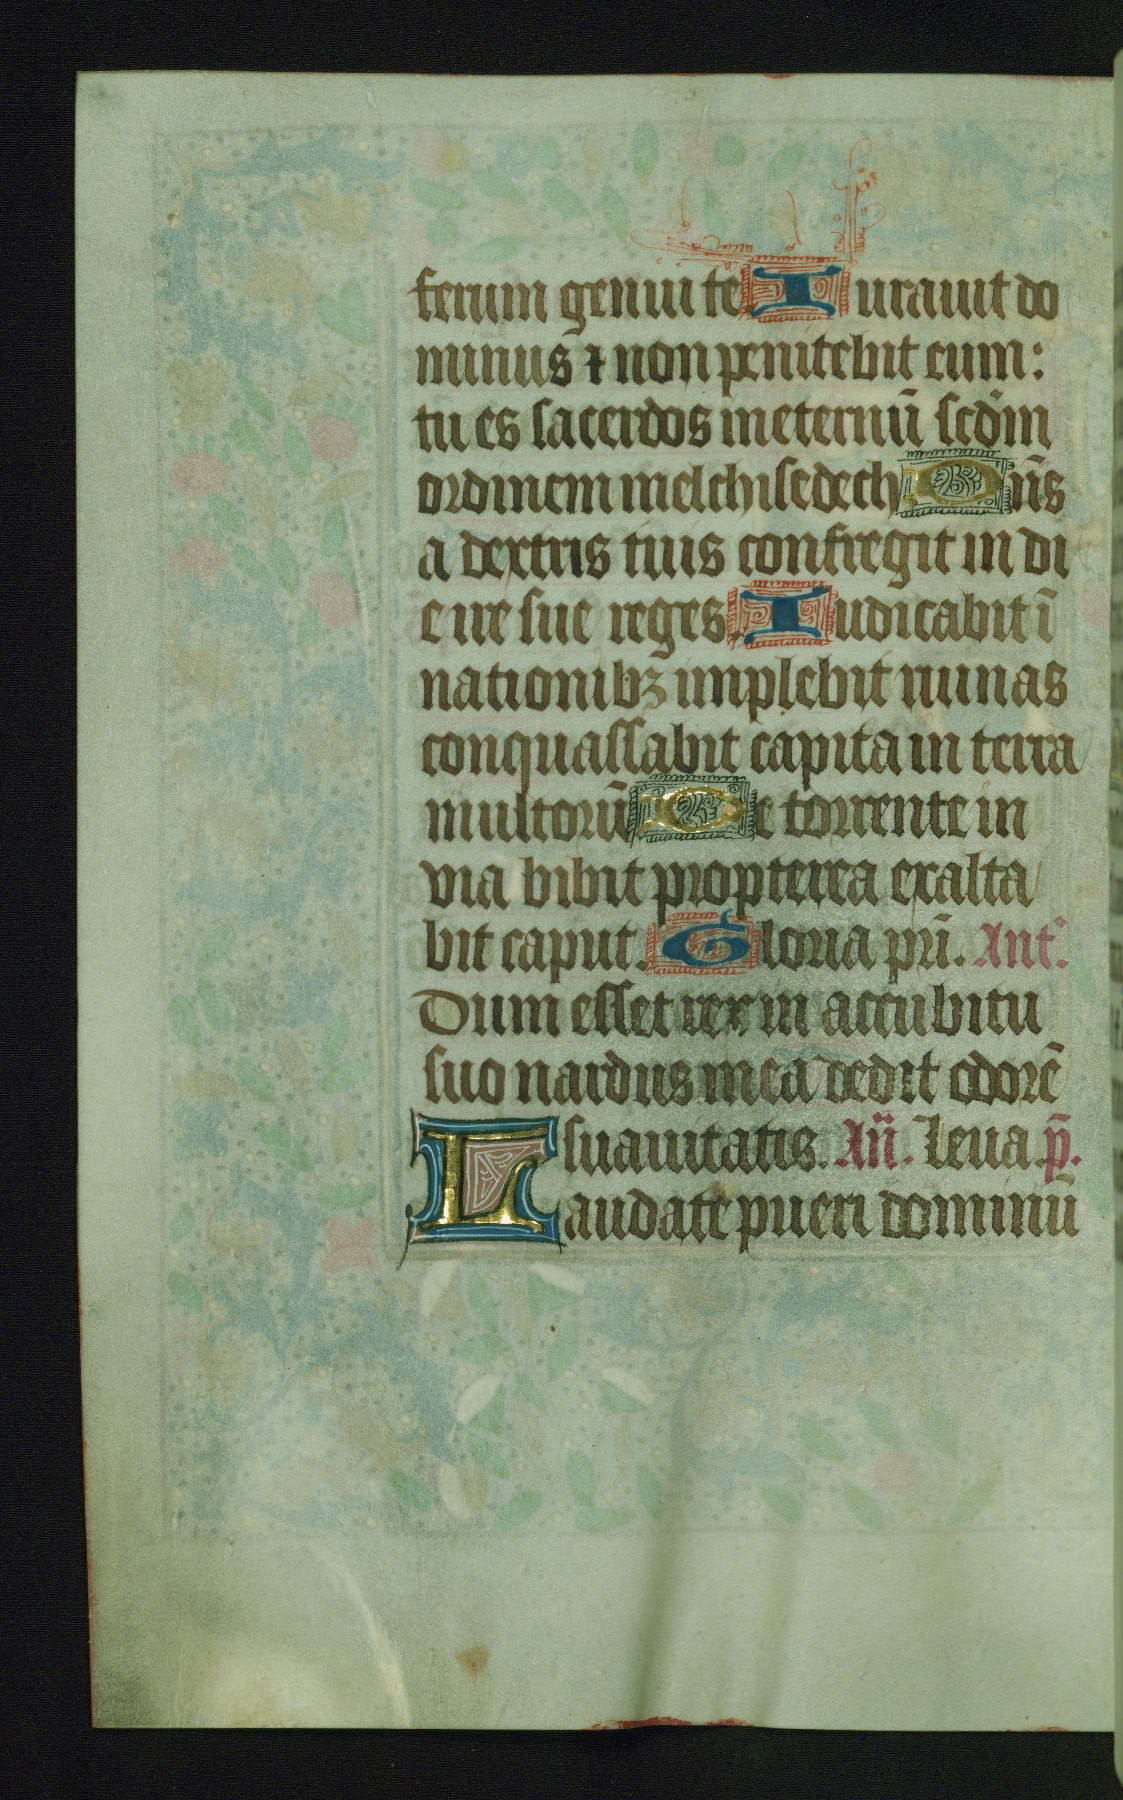 ferum genui te. Iurauit do
minus ⁊ non penitebit eum:
tu es sacerdos ineternū scd̄m
ordinem melchisedech Dn̄s
a dextris tuis confregit in di
e ire sue reges. Iudicabit ī
nationibꝫ implebit ruinas
conquassabit capita in terra
multorū De torrente in
via bibit propterea exalta
bit caput. Gloria pr̄i. Ant.
Dum esset rex in accubitu
suo nardus mea dedit odorē
suauitatis. An̄. Leua. p̄.
Laudate pueri dominū